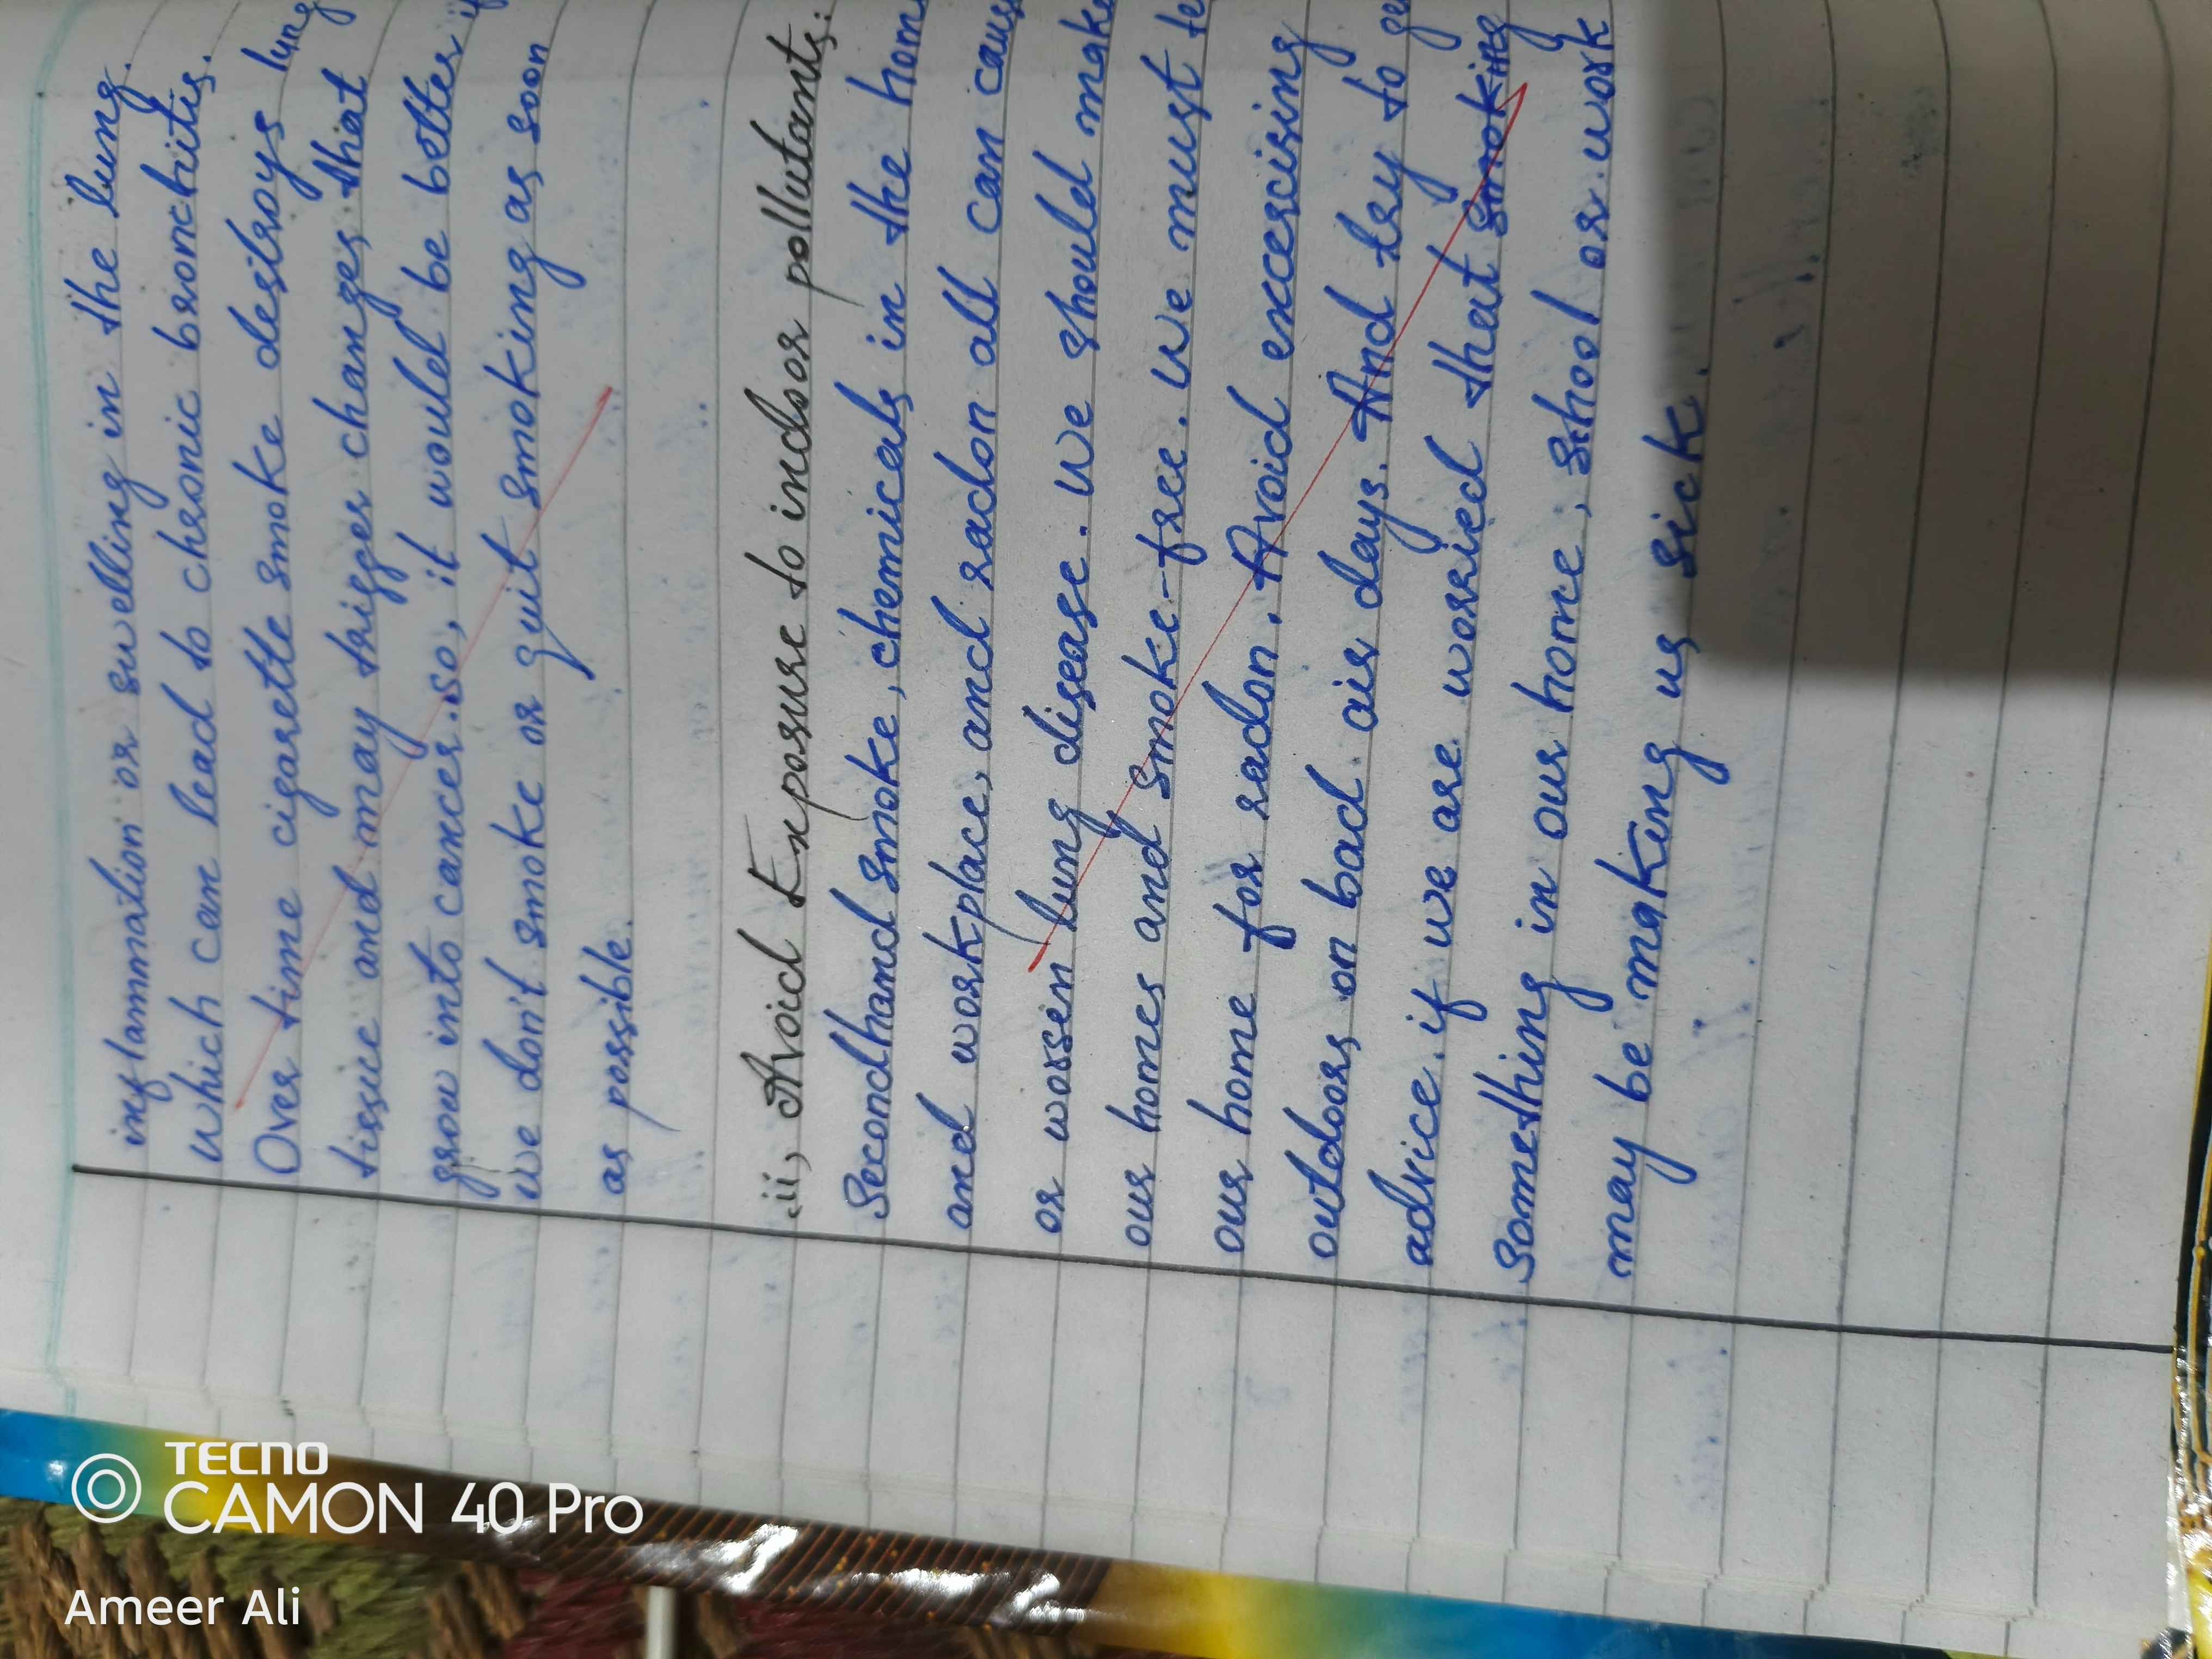 inflammation or swelling in the lung.
Which can lead to chronic bronchitis.
Over time cigarette smoke destroys lung
tissue and may trigger changes that
grow into cancer. so, it would be better if
we don't smoke or quit smoking as soon
as possible.
ii, Avoid Exposure to indoor pollutants:
Secondhand smoke, chemicals in the hom
and workplace, and radon all can caus
or worsen lung disease. We should make
our homes and smoke-free. We must te
our home for radon. Avoid excercising
outdoors on bad air days. And try to ge
advice. if we are worried that smoking
something in our home, school or work
may be making us sick.
TECNO
CAMON 40 Pro
Ameer Ali